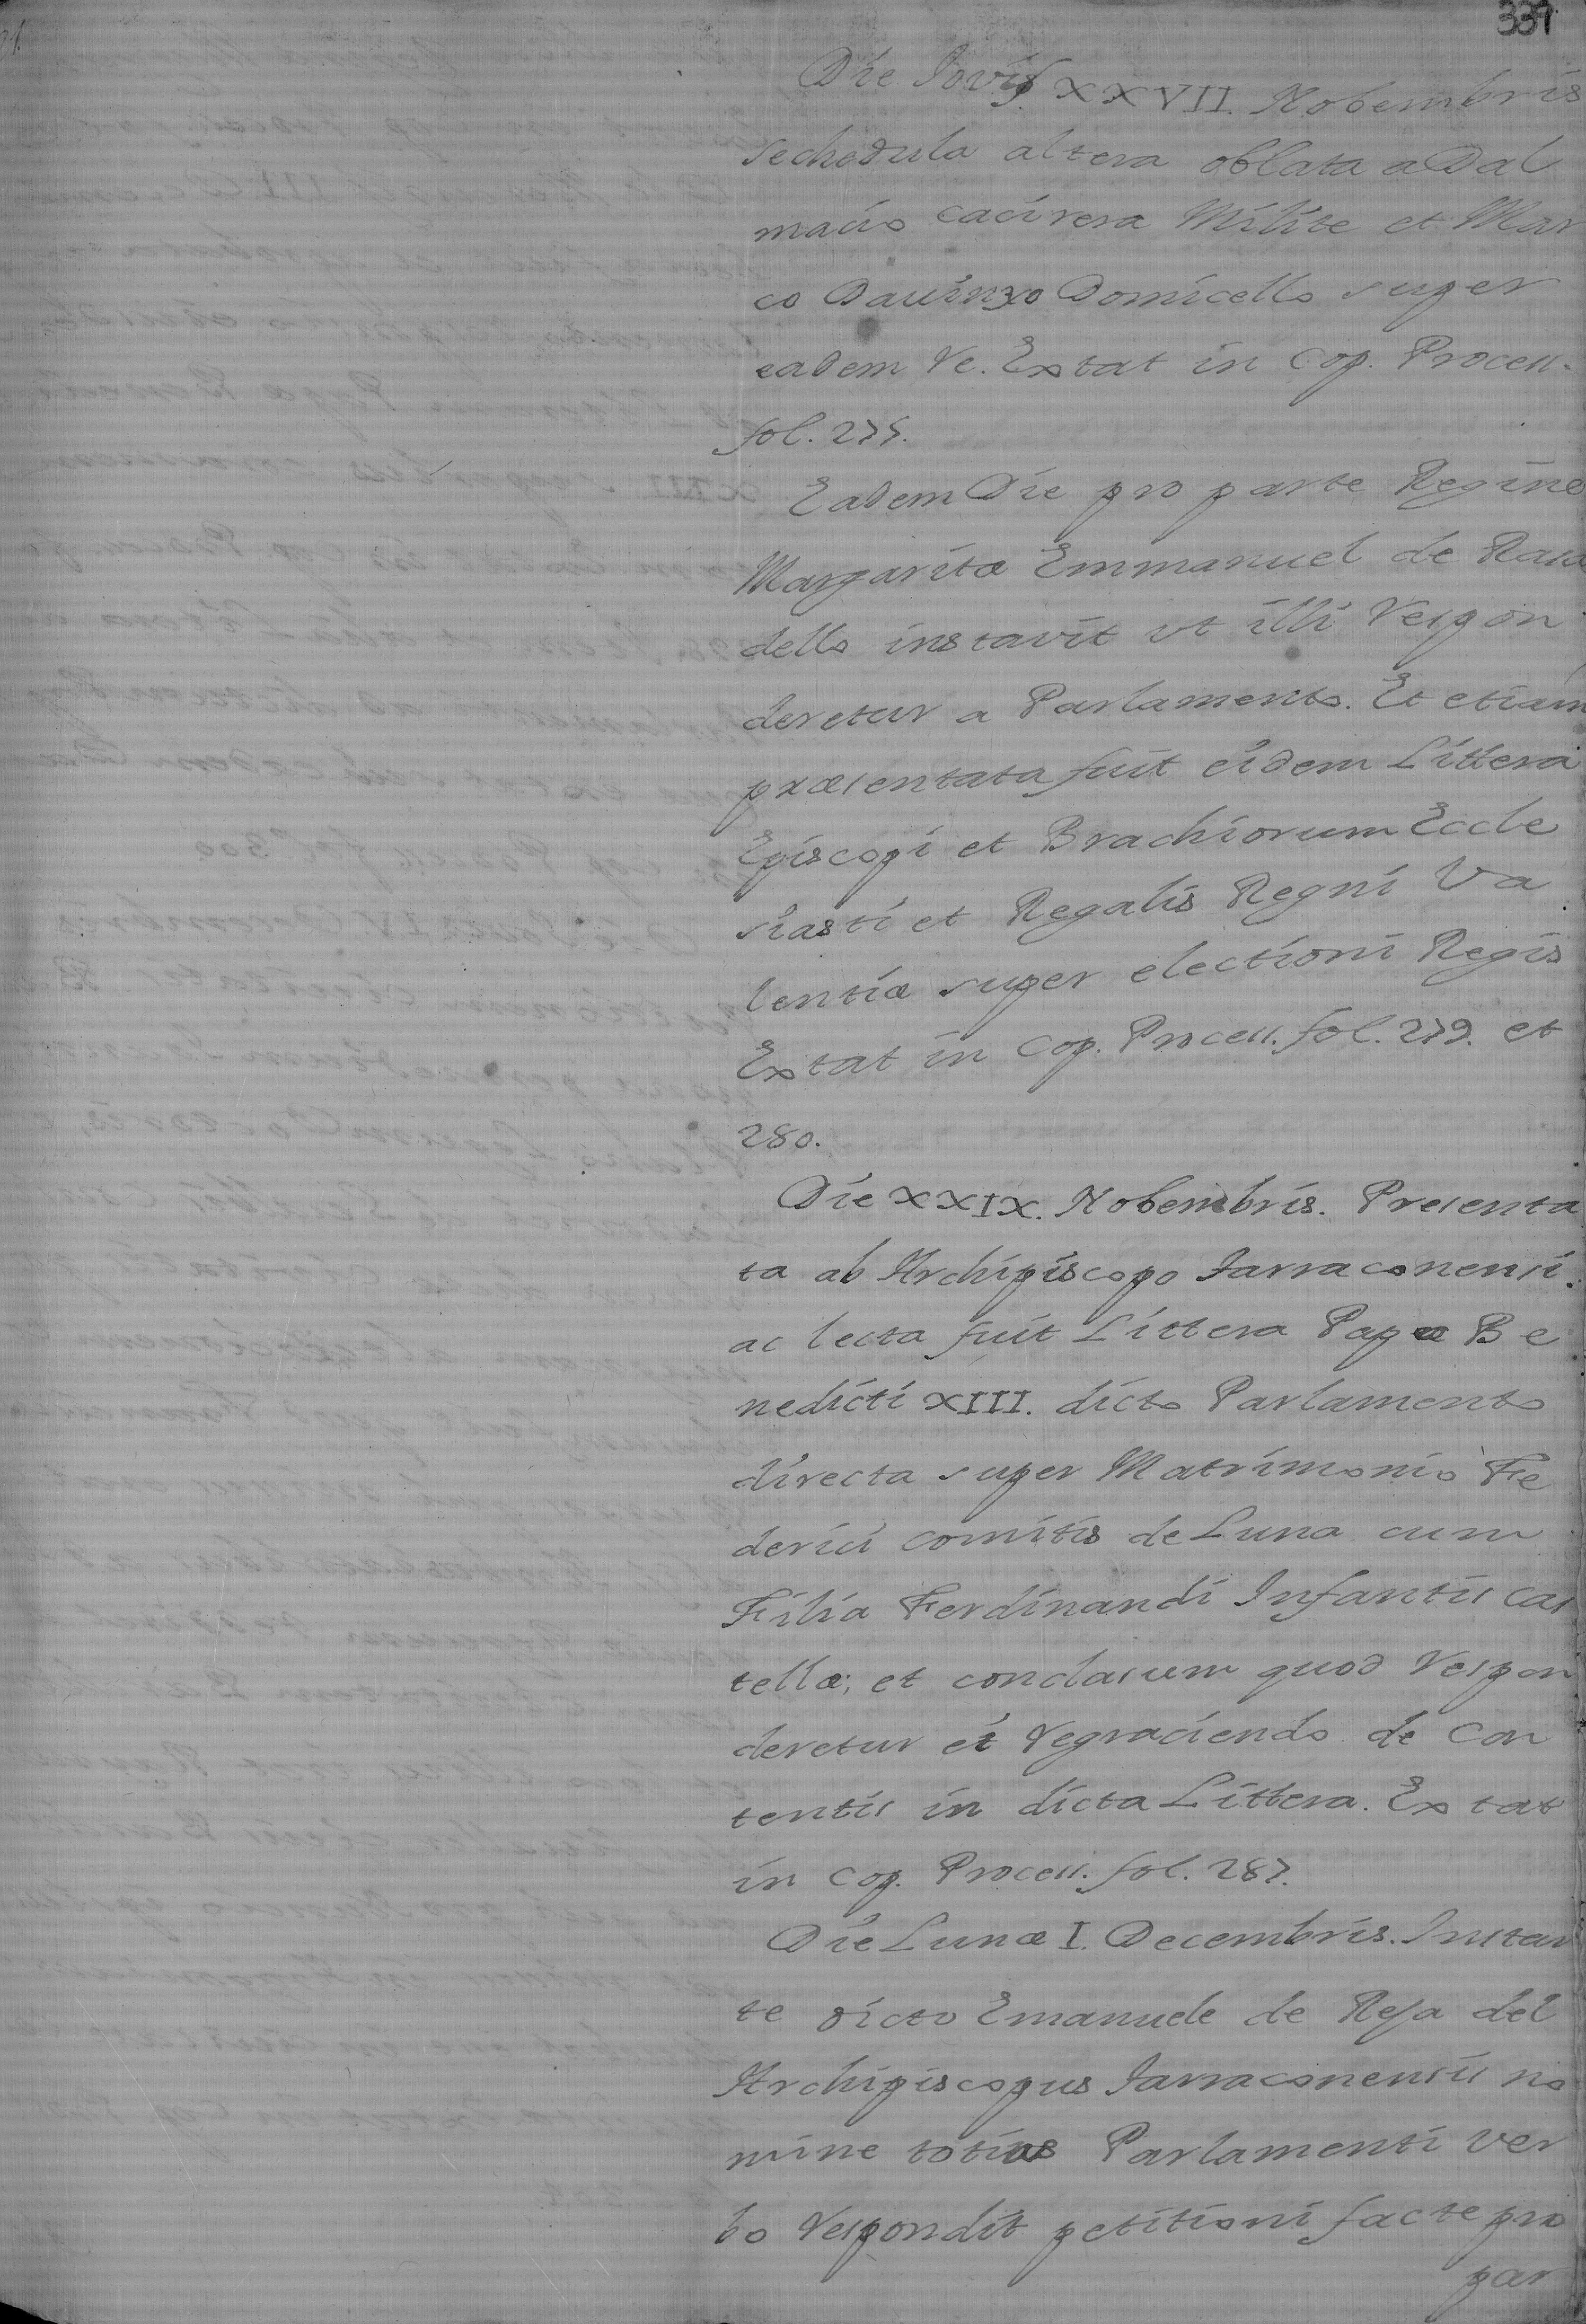 339
Die Jovis XXVII. Nobembris
schedula altera oblata a Dal
macio Cacirera Milite et Mar
co Dauinyo Domicello super
eadem re. Extat in Cop. Process.
fol. 275.
Eadem Die pro parte Regine
Margaritæ Emmanuel de Raia
dello instavit ut illi respon
deretur a Parlamento. Et etiam
præsentata fuit eidem Littera
Episcopi et Brachiorum Eccle
siasti et Regalis Regni Va
lentiæ super electioni Regis
Extat in Cop. Process. fol. 279. et
280.
Die XXIX. Nobembris. Presenta
ta ab Archipiscopo Tarraconensi.
ac lecta fuit Littera Papæ Be
nedicti XIII. dicto Parlamento
directa super Matrimonio Fe
derici comitis de Luna cum
Filia Ferdinandi Infantis Cas
tellæ; et conclasum quod respon
deretur ei regraciendo de Con
tentis in dicta Littera. Extat
in Cop. Process. fol. 287.
Die Lunæ I. Decembris. Instan
te dicto Emanuele de Rejadel
Archipiscopus Tarraconensis no
mine totius Parlamenti ver
bo respondit petitioni facte pro
par